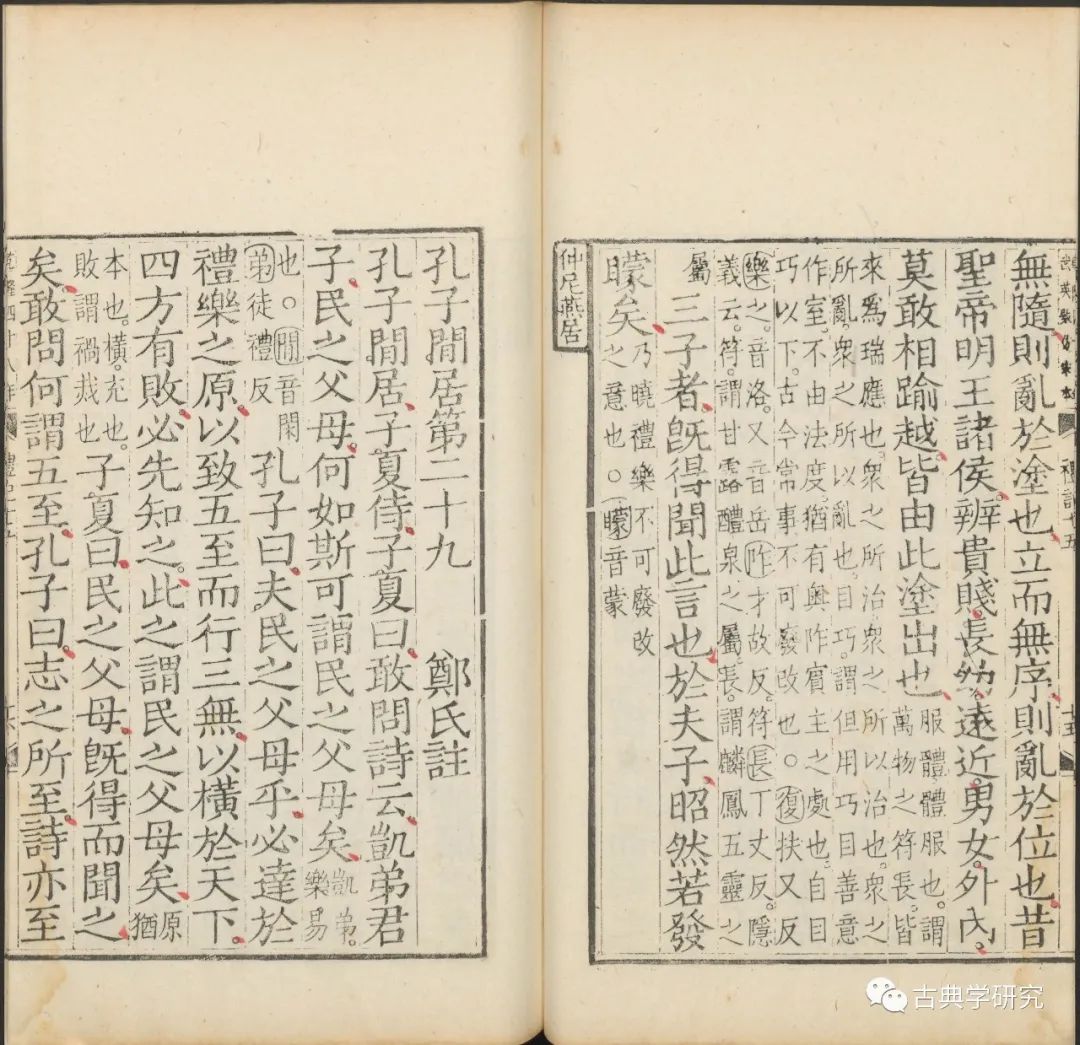 禮記十五
無隨則亂於塗也。立而無序、則亂於位也。昔
聖帝明王諸侯、辨貴賤、長幼、遠近、男女、外內、
莫敢相踰越、皆由此塗出也、
服體體服也。謂
萬物之符長。皆
來爲瑞應也。衆之所治衆之所以治也。衆之
所亂。衆之所以亂也。目巧。謂但用巧目善意
作室。不由法度。猶有奧阼賓主之處也。自目
巧以下。古今常事不可廢改也。○復扶又反
樂之。音洛。又音岳阼才故反。符長丁丈反。隱
義云。符。謂甘露醴泉之屬。長。謂麟鳳五靈之
屬
三子者、旣得聞此言也、於夫子、昭然若發
矇矣、
乃曉禮樂不可廢改
之意也。○矇音蒙
仲尼燕居
孔子閒居第二十九　鄭氏註
孔子閒居、子夏侍、子夏曰、敢問詩云、凱弟君
子、民之父母、何如斯可謂民之父母矣、
凱弟。
樂易
也。○閒音閑
弟徒禮反
孔子曰、夫民之父母乎、必達於
禮樂之原、以致五至而行三無、以橫於天下、
四方有敗、必先知之、此之謂民之父母矣、
原
猶
本也。橫。充也。
敗謂禍烖也
子夏曰、民之父母、旣得而聞之
矣、敢問何謂五至、孔子曰、志之所至、詩亦至
乾隆四十八年